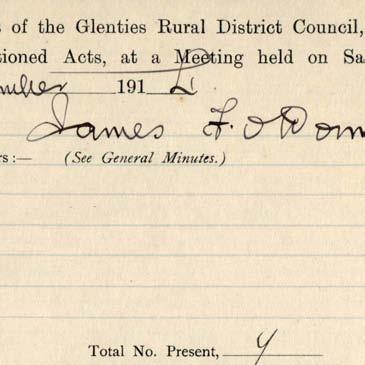 s of the Glenties Rural District Council,
tioned Acts, at a Meeting held on Sa
mber 191
James F. O'Don
rs:— (See General Minutes.)
Total No. Present,